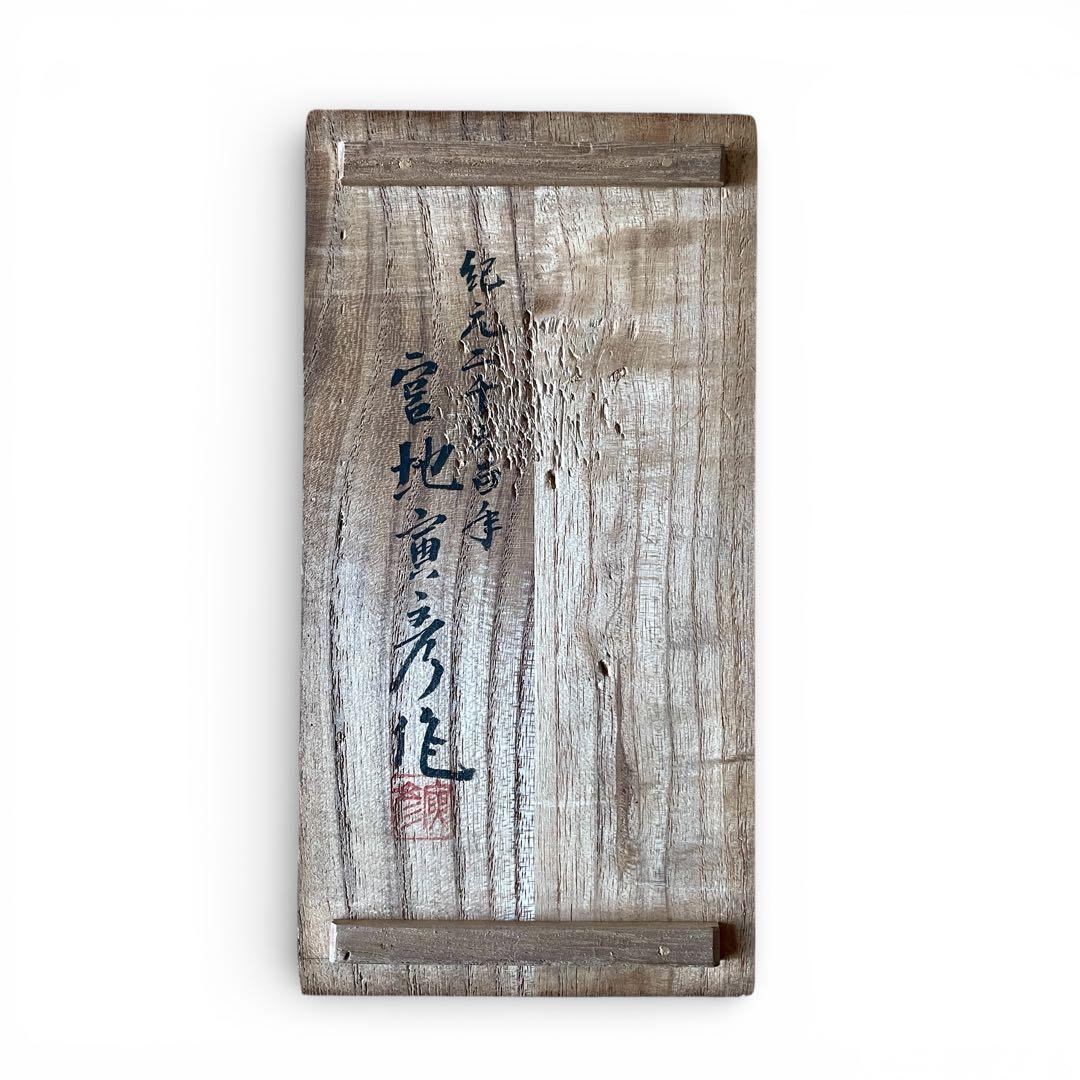 紀元二千六百年
宮地寅彦作
寅彦